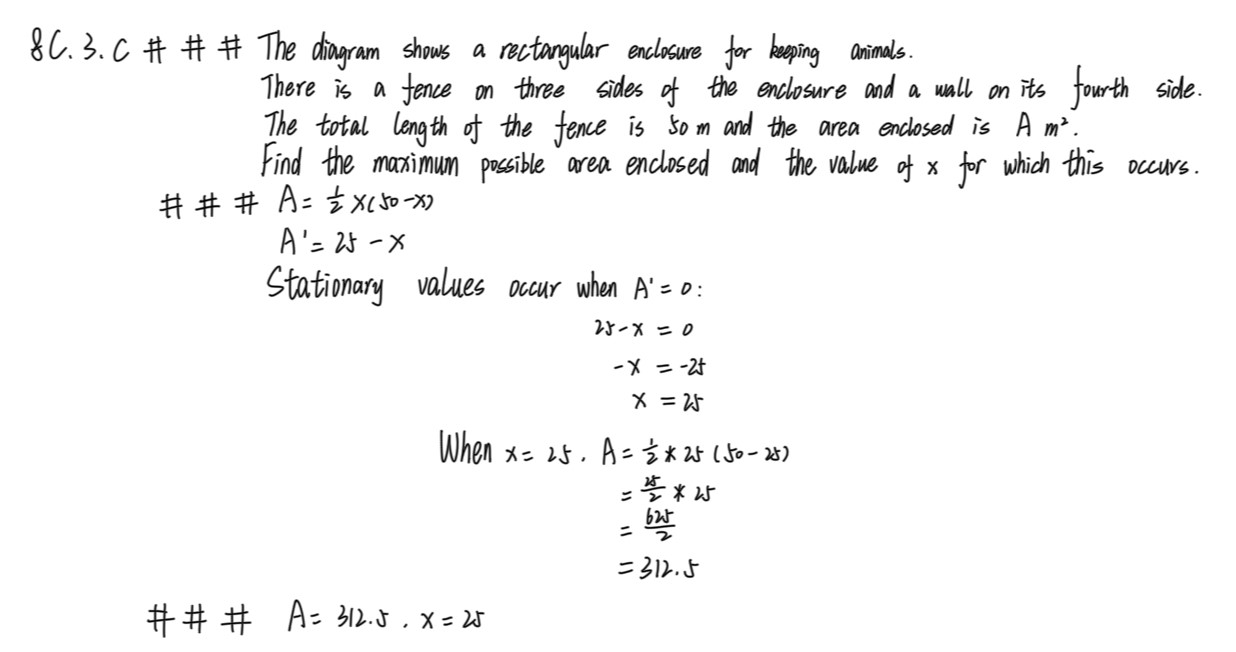 8C.3.C # # # The diagram shows a rectangular enclosure for keeping animals.
There is a fence on three sides of the enclosure and a wall on its fourth side.
The total length of the fence is 50 m and the area enclosed is A m².
Find the maximum possible area enclosed and the value of x for which this occurs.
# # # A = 1/2 x(50-x)
A' = 25 - x
Stationary values occur when A' = 0:
25 - x = 0
-x = -25
x = 25
When x = 25, A = 1/2 * 25 (50 - 25)
= 25/2 * 25
= 625/2
= 312.5
# # # A = 312.5, x = 25